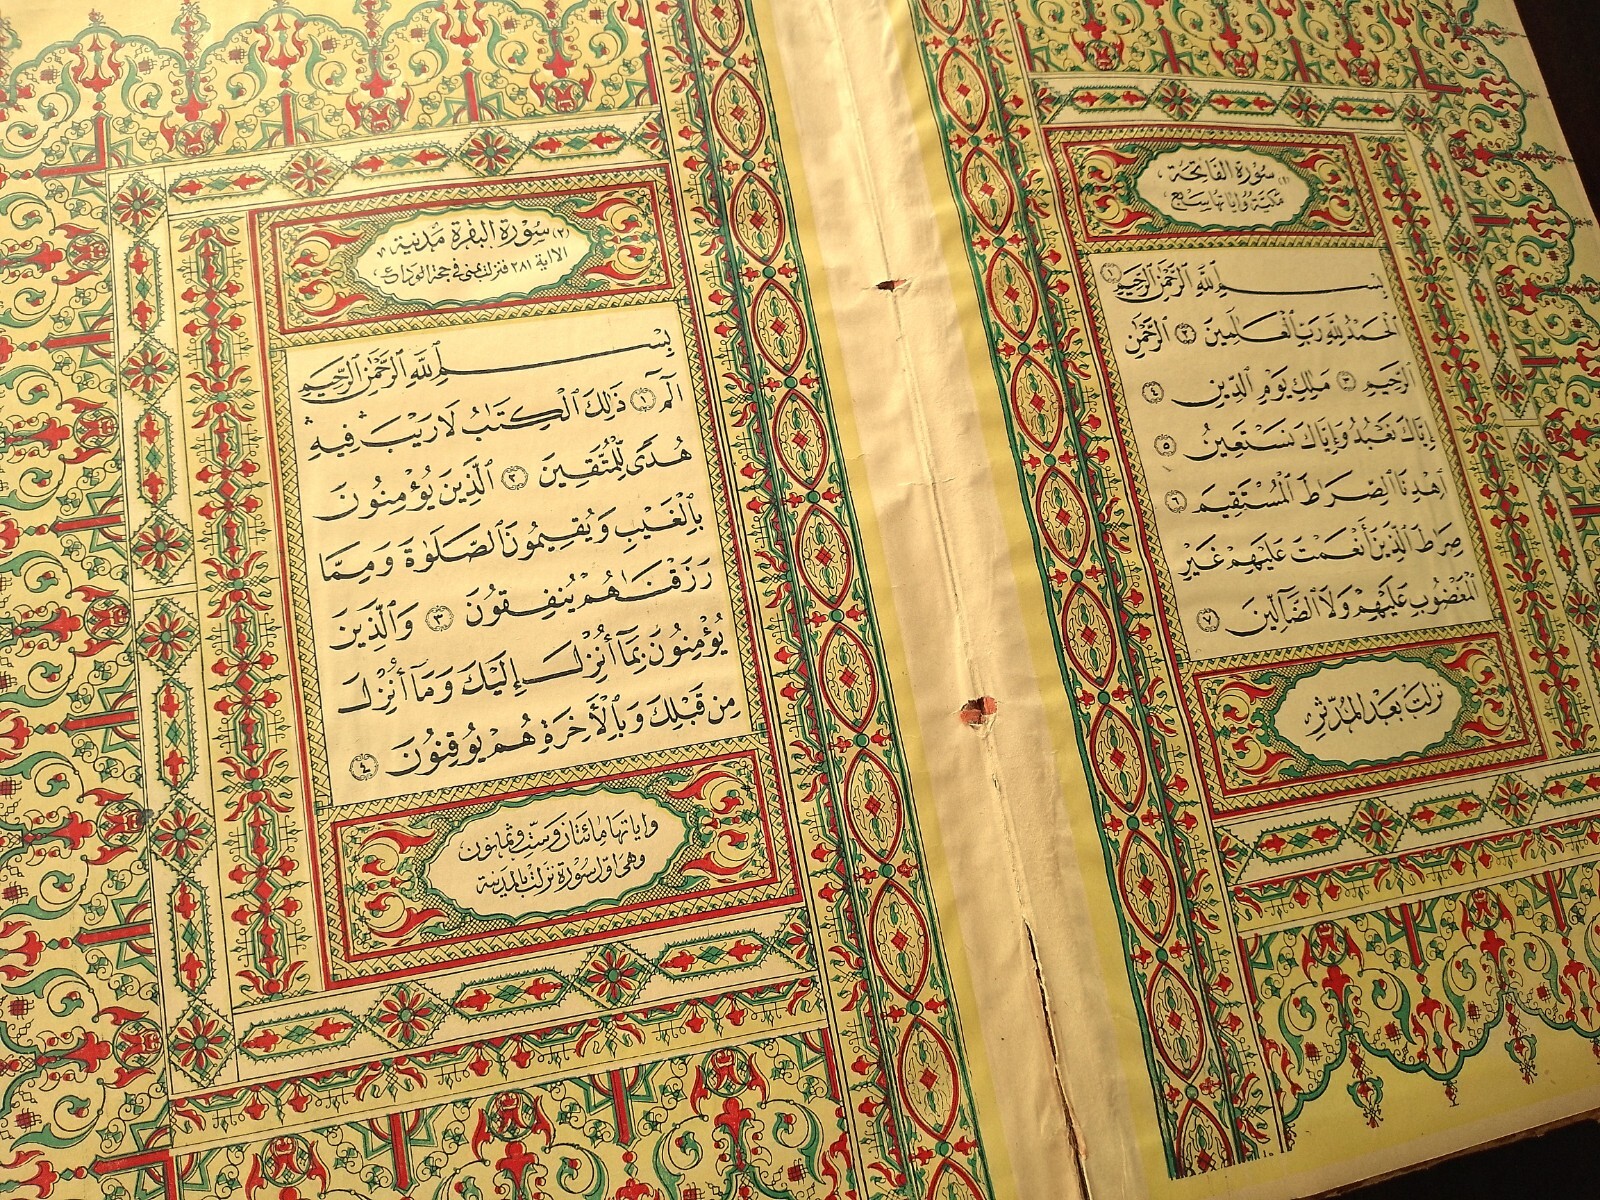 (١) سورة الفاتحة
مكية وآياتها سبع
بِسْمِ ٱللَّهِ ٱلرَّحْمَٰنِ ٱلرَّحِيمِ ١
ٱلْحَمْدُ لِلَّهِ رَبِّ ٱلْعَٰلَمِينَ ٢ ٱلرَّحْمَٰنِ
ٱلرَّحِيمِ ٣ مَٰلِكِ يَوْمِ ٱلدِّينِ ٤
إِيَّاكَ نَعْبُدُ وَإِيَّاكَ نَسْتَعِينُ ٥
ٱهْدِنَا ٱلصِّرَاطَ ٱلْمُسْتَقِيمَ ٦
صِرَاطَ ٱلَّذِينَ أَنْعَمْتَ عَلَيْهِمْ غَيْرِ
ٱلْمَغْضُوبِ عَلَيْهِمْ وَلَا ٱلضَّآلِّينَ ٧
نزلت بعد المدثر
(٢) سورة البقرة مدنية
الا اية ٢٨١ فنزلت بمنى في حجة الوداع
بِسْمِ ٱللَّهِ ٱلرَّحْمَٰنِ ٱلرَّحِيمِ
الٓمٓ ١ ذَٰلِكَ ٱلْكِتَٰبُ لَا رَيْبَ فِيهِ
هُدًى لِّلْمُتَّقِينَ ٢ ٱلَّذِينَ يُؤْمِنُونَ
بِٱلْغَيْبِ وَيُقِيمُونَ ٱلصَّلَوٰةَ وَمِمَّا
رَزَقْنَٰهُمْ يُنفِقُونَ ٣ وَٱلَّذِينَ
يُؤْمِنُونَ بِمَآ أُنْزِلَ إِلَيْكَ وَمَآ أُنْزِلَ
مِن قَبْلِكَ وَبِٱلْأَخِرَةِ هُمْ يُوقِنُونَ ٤
وآياتها مائتان وست وثمانون
وهي أول سورة نزلت بالمدينة